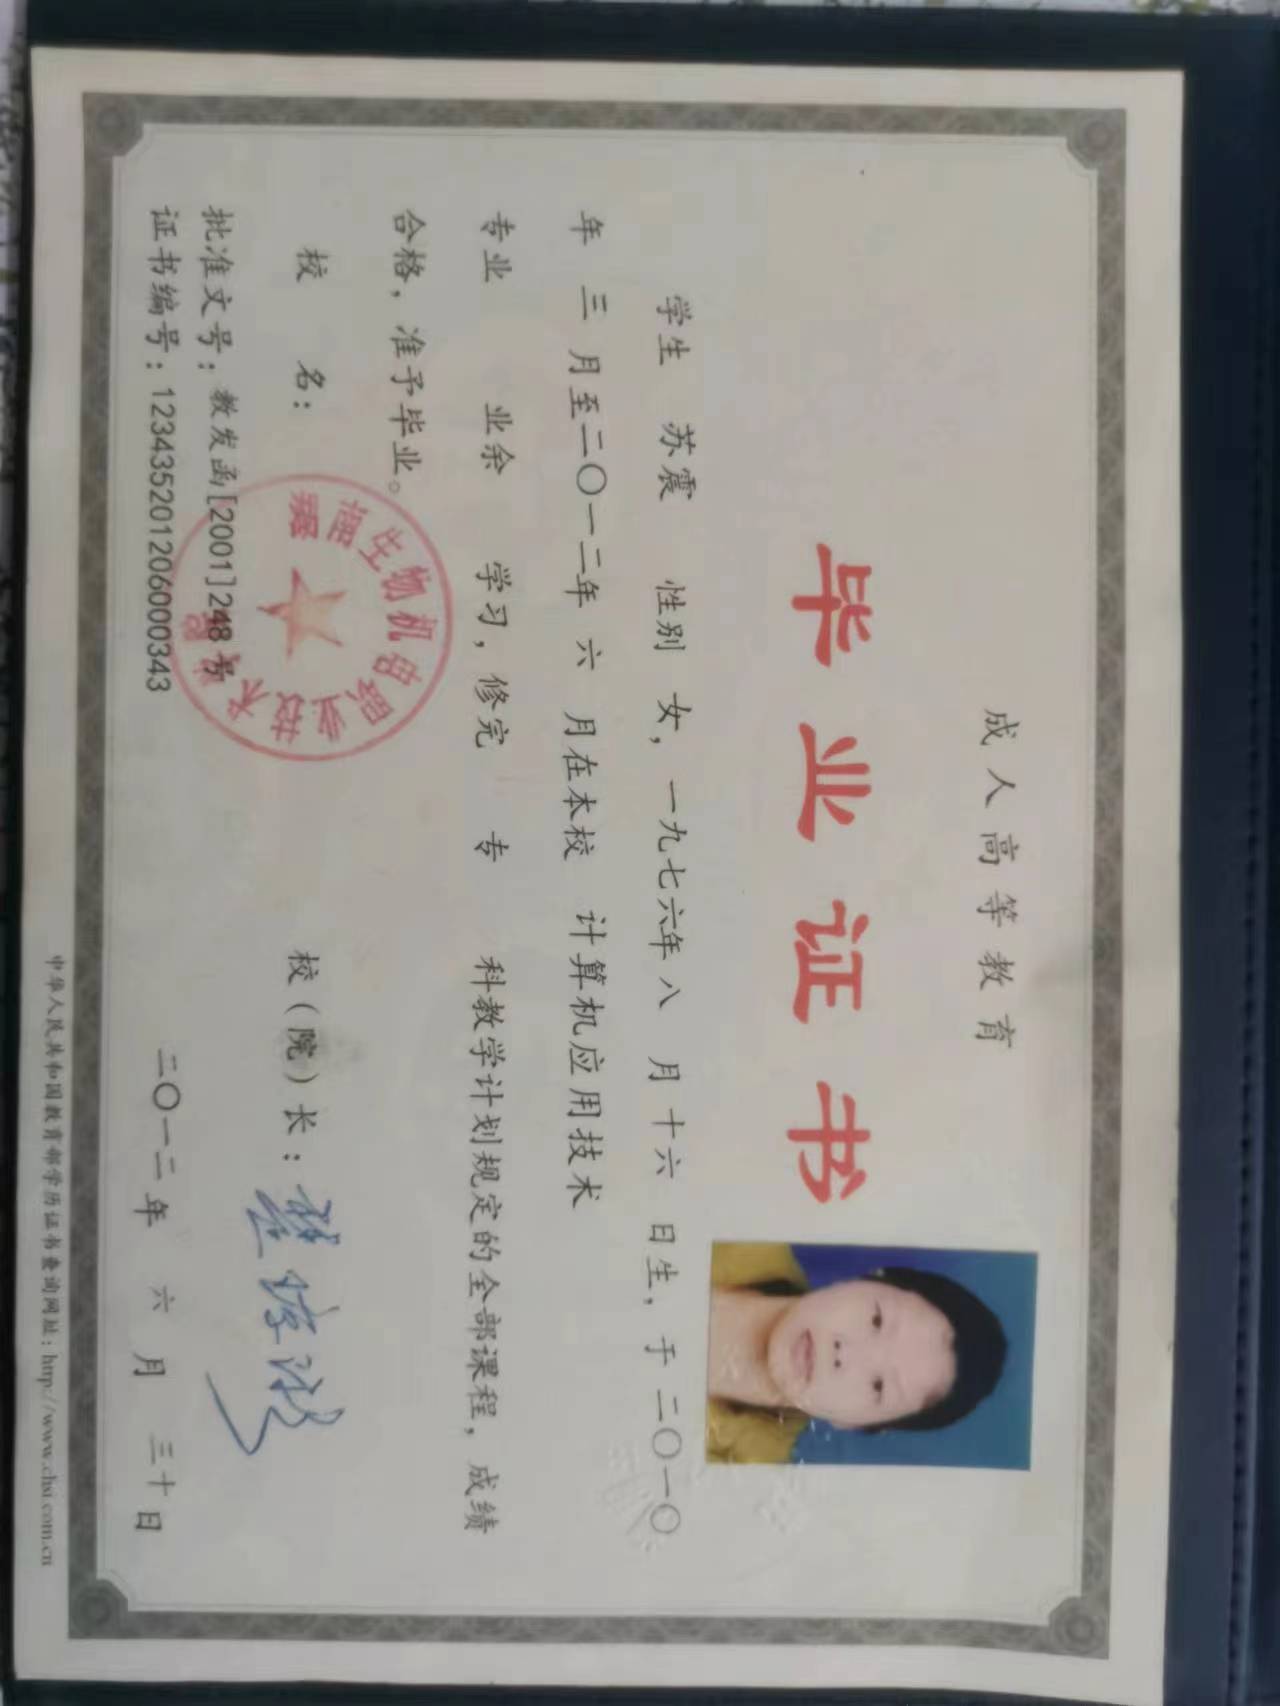 成人高等教育
毕业证书
学生 苏震 性别 女，一九七六年八 月十六 日生，于二〇一〇
年 三 月至二〇一二年 六 月在本校 计算机应用技术
专业 业余 学习，修完 专 科教学计划规定的全部课程，成绩
合格，准予毕业。
校 名： 校（院）长：
南生物机电职业技术
批准文号：教发函[2001]248号
证书编号：123435201206000343 二〇一二年 六 月 三十日
中华人民共和国教育部学历证书查询网址：http://www.chsi.com.cn